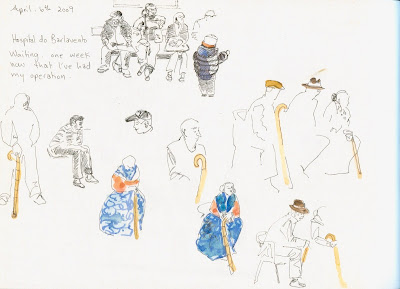 April. 6th 2009
Hospital do Barlavento
Waiting. one week
now that I've had
my operation.